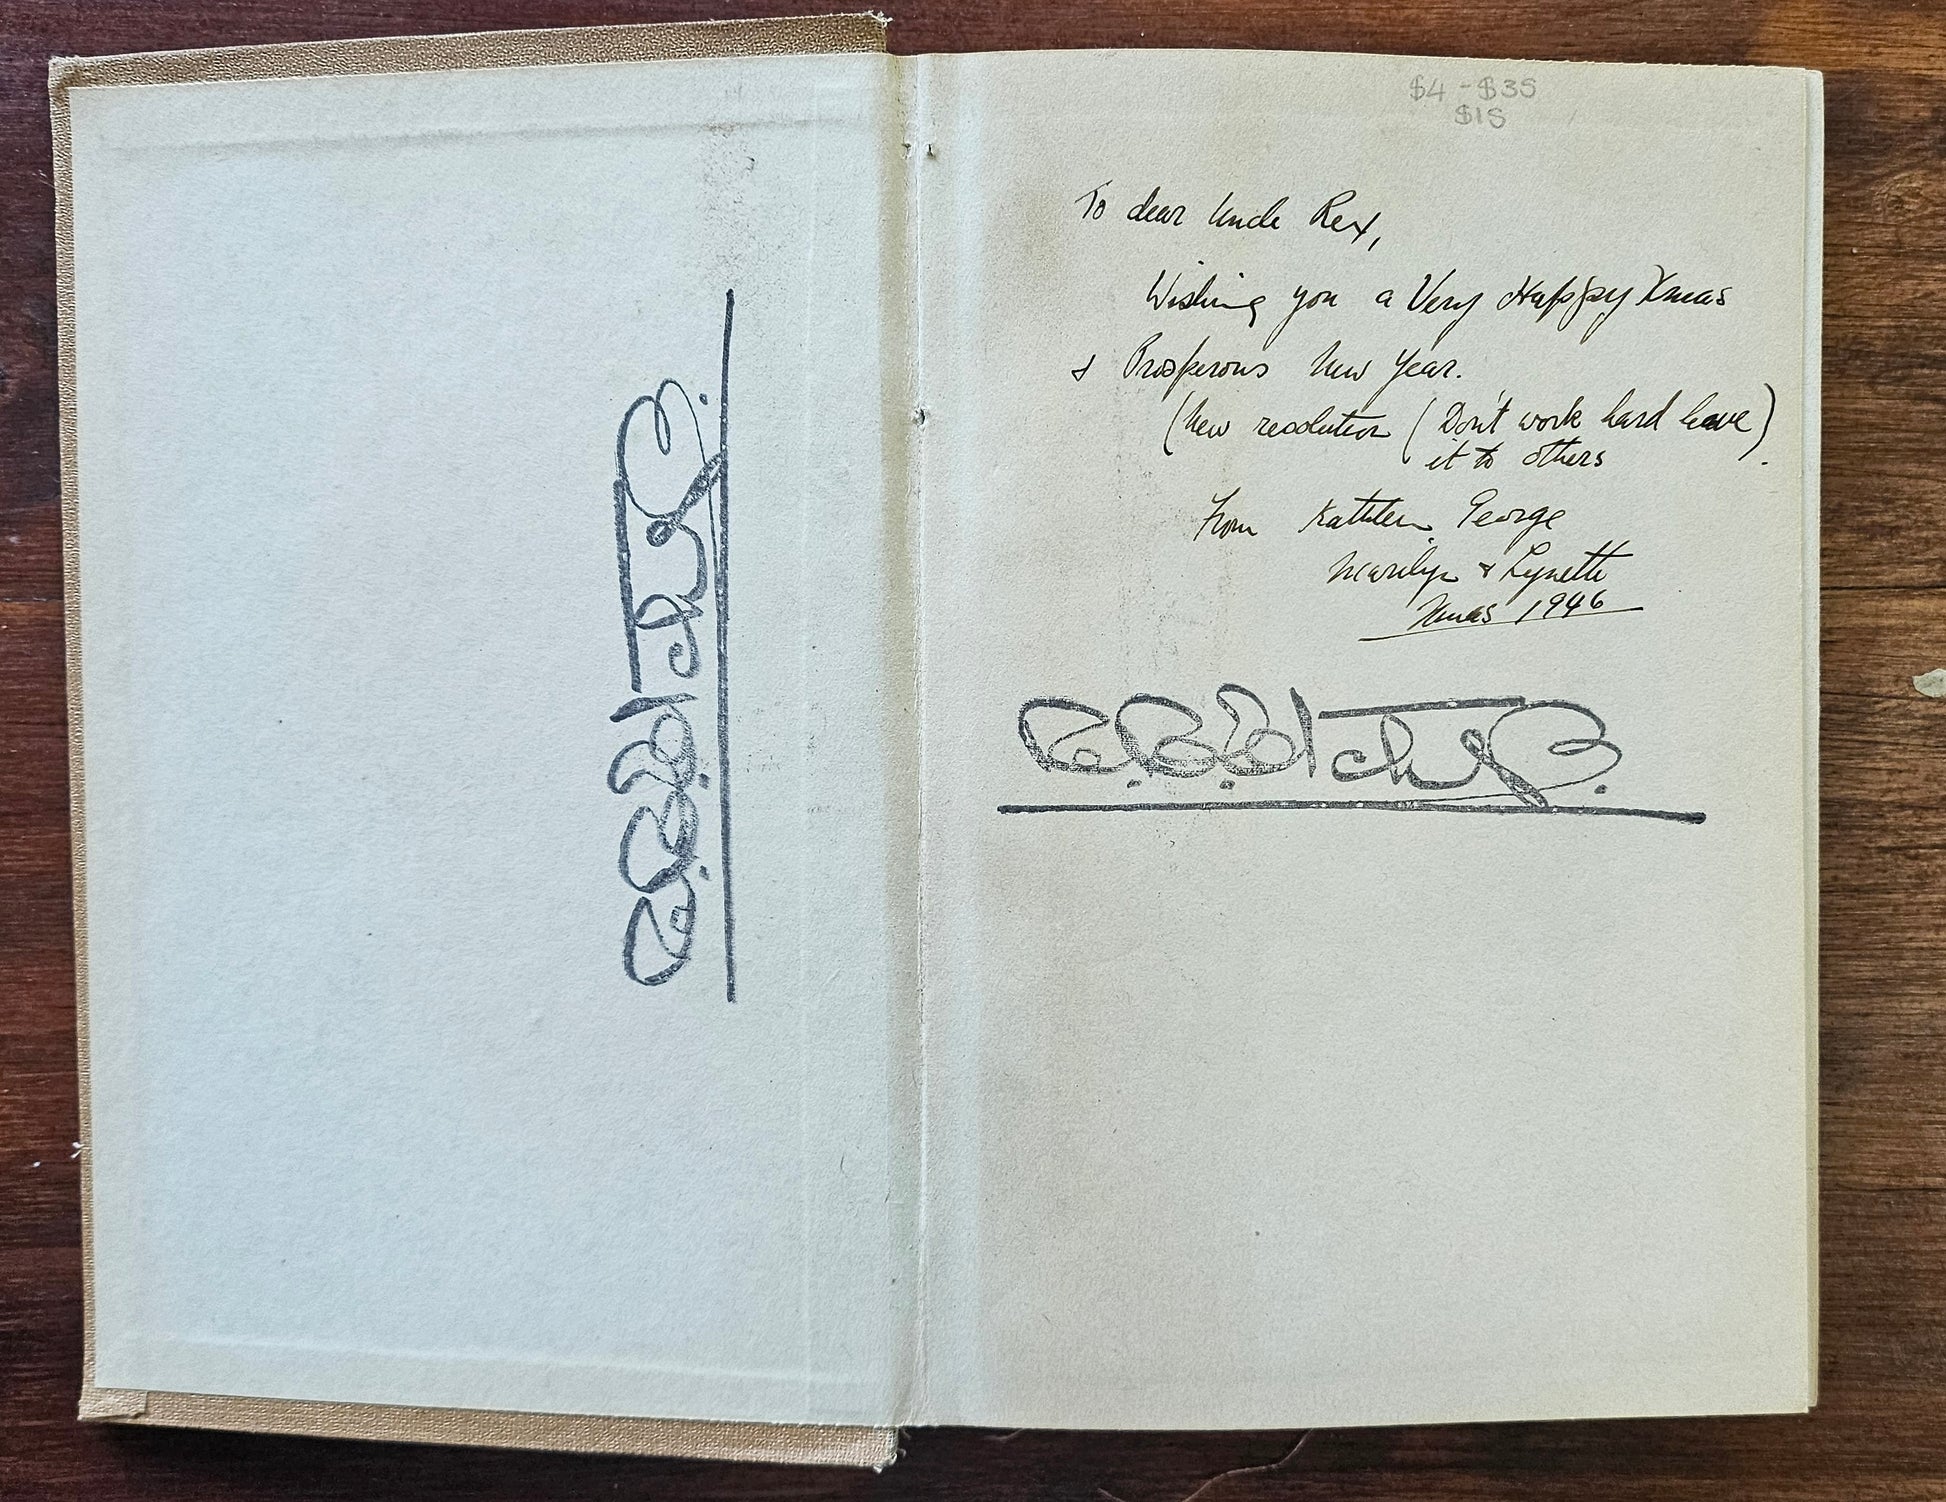 $4 - $35
$15
To dear Uncle Rex,
Wishing you a Very Happy Xmas
& Prosperous New Year.
(New resolution (Don't work hard leave)
it to others.
From Kathleen, George
Marilyn & Lynette
Xmas 1946